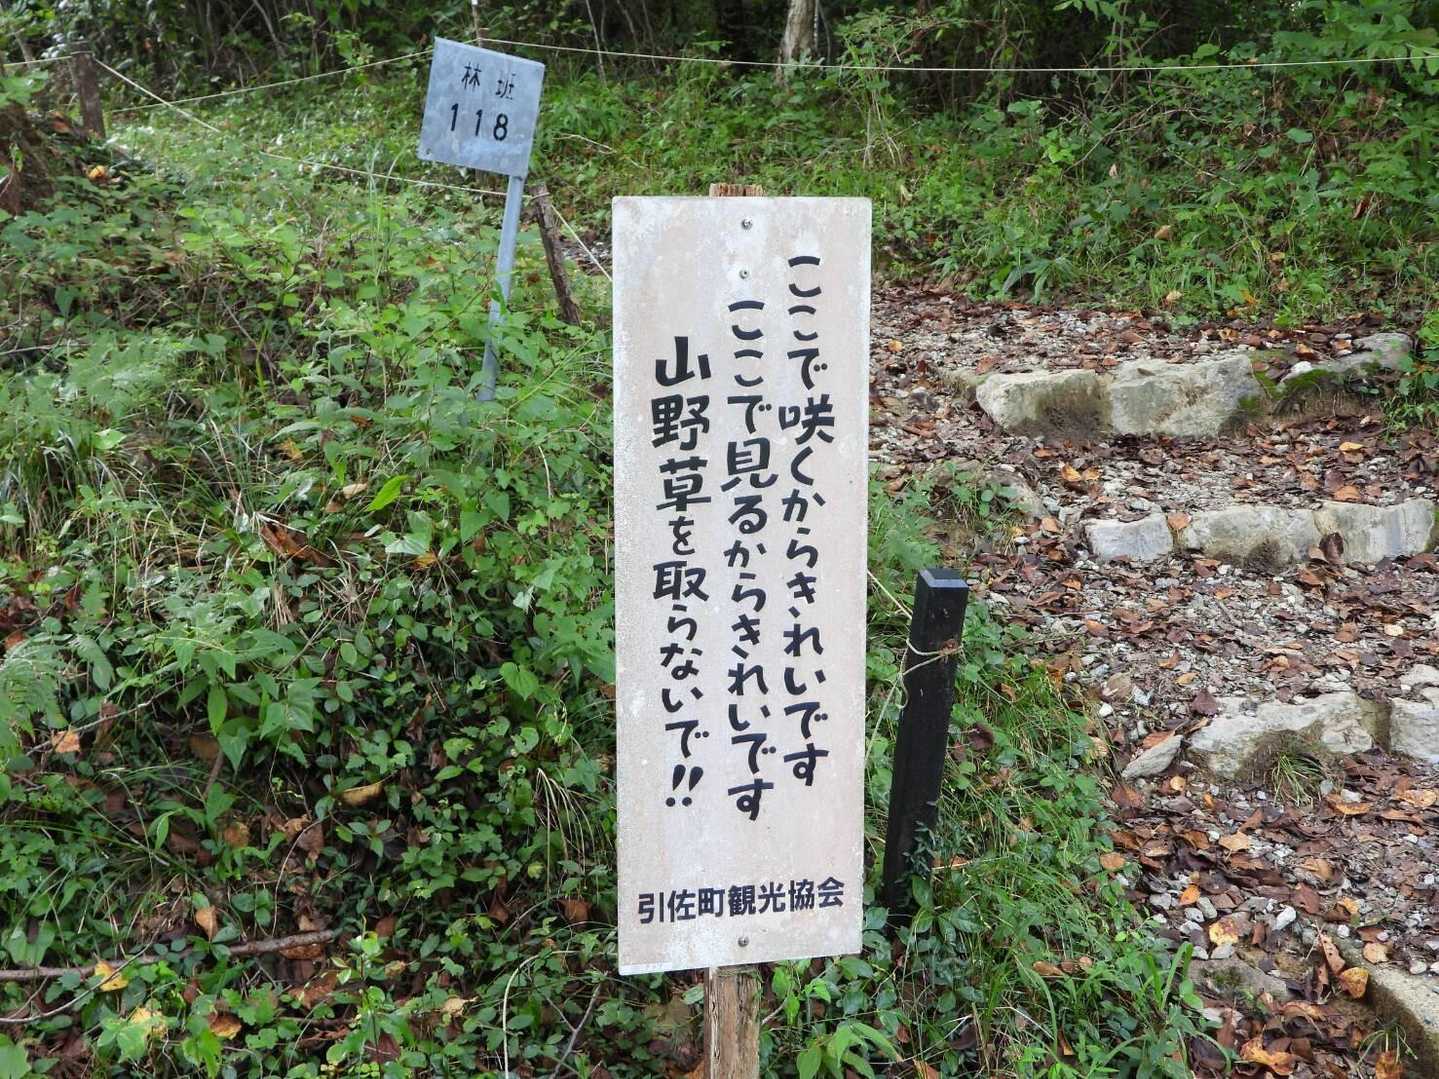 林班
118
ここで咲くからきれいです
ここで見るからきれいです
山野草を取らないで!!
引佐町観光協会